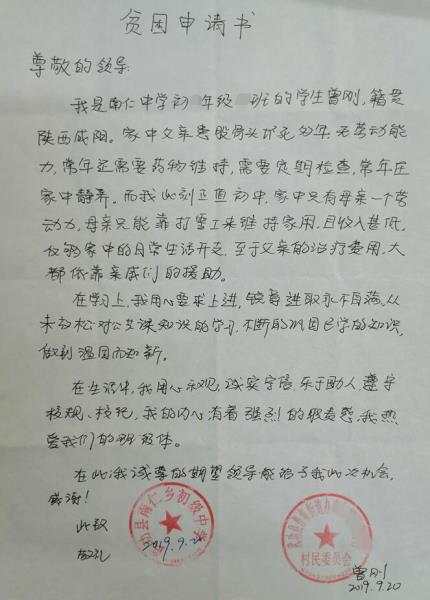 贫困申请书
尊敬的领导:
我是南仁中学初 年级 班的学生曾刚,籍贯
陕西咸阳。家中父亲患股骨头坏死多年,无劳动能
力,常年还需要药物维持,需要定期检查,常年在
家中静养。而我此刻正直初中,家中只有母亲一个劳
动力,母亲只能靠打零工来维持家用,且收入甚低。
仅够家中的日常生活开支。至于父亲的治疗费用,大
都依靠亲戚们的援助。
在学习上,我用心要求上进,锐意进取永不自满。从
未放松对公共课知识的学习,不断的巩固已学的知识,
做到温固而知新。
在生活中,我用心乐观,诚实守信,乐于助人,遵守
校规、校纪,我的内心有着强烈的职责感,我热
爱我们的班级体。
在此,我诚挚的期望领导能给予我此次机会,
感谢!
此致
敬礼
武功县南仁乡初级中学
2019.9.20
村民委员会
曾刚
2019.9.20